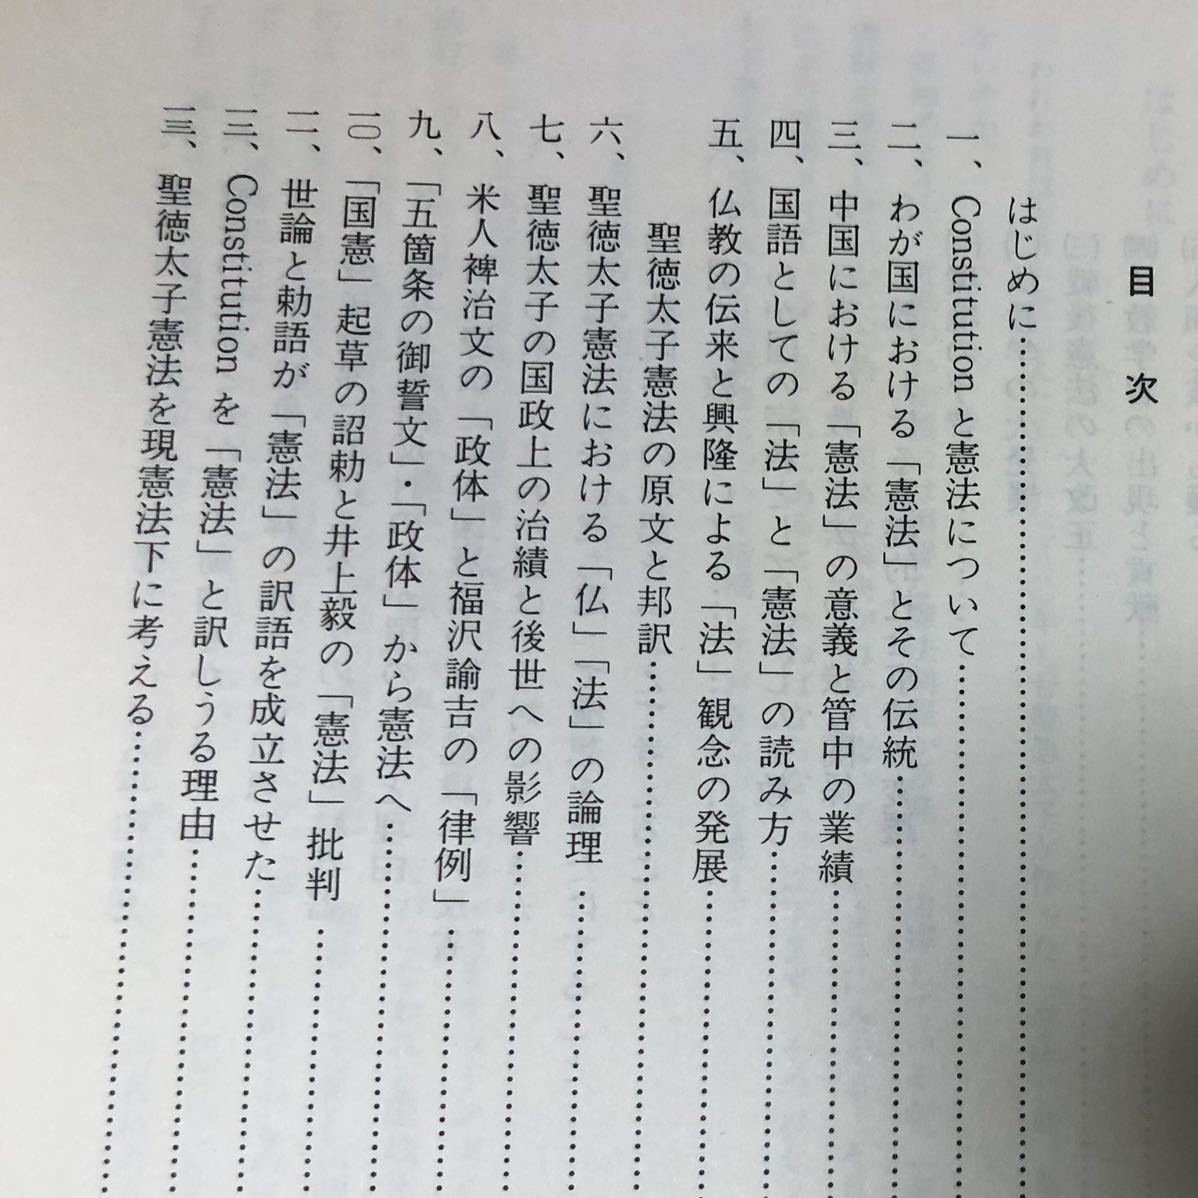 目次
はじめに
一、Constitution と憲法について
二、わが国における「憲法」とその伝統
三、中国における「憲法」の意義と管中の業績
四、国語としての「法」と「憲法」の読み方
五、仏教の伝来と興隆による「法」観念の発展
聖徳太子憲法の原文と邦訳
六、聖徳太子憲法における「仏」「法」の論理
七、聖徳太子の国政上の治績と後世への影響
八、米人裨治文の「政体」と福沢諭吉の「律例」
九、「五箇条の御誓文」・「政体」から憲法へ
一〇、「国憲」起草の詔勅と井上毅の「憲法」批判
一一、世論と勅語が「憲法」の訳語を成立させた
一二、Constitution を「憲法」と訳しうる理由
一三、聖徳太子憲法を現憲法下に考える